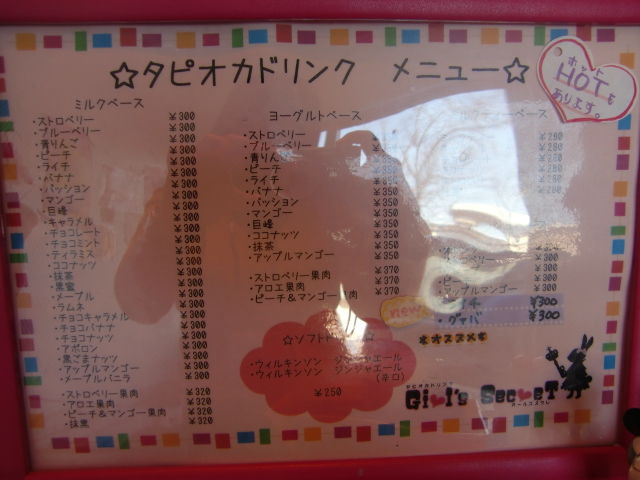 ☆タピオカドリンク メニュー☆
ホット
HOTも
あります。
ミルクベース
・ストロベリー ¥300
・ブルーベリー ¥300
・青りんご ¥300
・ピーチ ¥300
・ライチ ¥300
・バナナ ¥300
・パッション ¥300
・マンゴー ¥300
・巨峰 ¥300
・キャラメル ¥300
・チョコレート ¥300
・チョコミント ¥300
・ティラミス ¥300
・ココナッツ ¥300
・抹茶 ¥300
・黒蜜 ¥300
・メープル ¥300
・ラムネ ¥300
・チョコキャラメル ¥300
・チョコバナナ ¥300
・チョコナッツ ¥300
・アポロン ¥300
・黒ごまナッツ ¥300
・アップルマンゴー ¥300
・メープルバニラ ¥300
・ストロベリー果肉 ¥320
・アロエ果肉 ¥320
・ピーチ&マンゴー果肉 ¥320
・抹黒 ¥320
ヨーグルトベース
・ストロベリー
・ブルーベリー
・青りん
・ピーチ
・ライチ
・バナナ ¥350
・パッション ¥350
・マンゴー ¥350
・巨峰 ¥350
・ココナッツ ¥350
・抹茶 ¥350
・アップルマンゴー ¥350
・ストロベリー果肉 ¥370
・アロエ果肉 ¥370
・ピーチ&マンゴー 肉 ¥370
ベース
¥280
¥280
¥280
¥280
¥280
¥300
¥300
¥300
アップルマンゴー ¥300
new チ ¥300
・グァバ ¥300
★オススメ★
☆ソフトド
・ウィルキンソン ジンジャエール
・ウィルキンソン ジンジャエール
(辛口)
¥250
タピオカドリンク
Girl's SecreT
ガールズシークレット